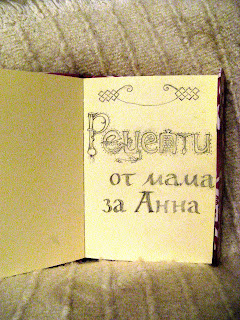 Рецепти
от мама
за Анна